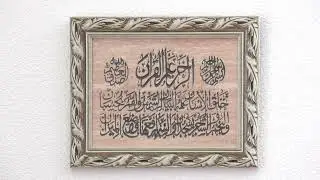 الرحمن علم القرآن
خلق الإنسان علمه البيان الشمس والقمر بحسبان
والنجم والشجر يسجدان والسماء رفعها ووضع الميزان